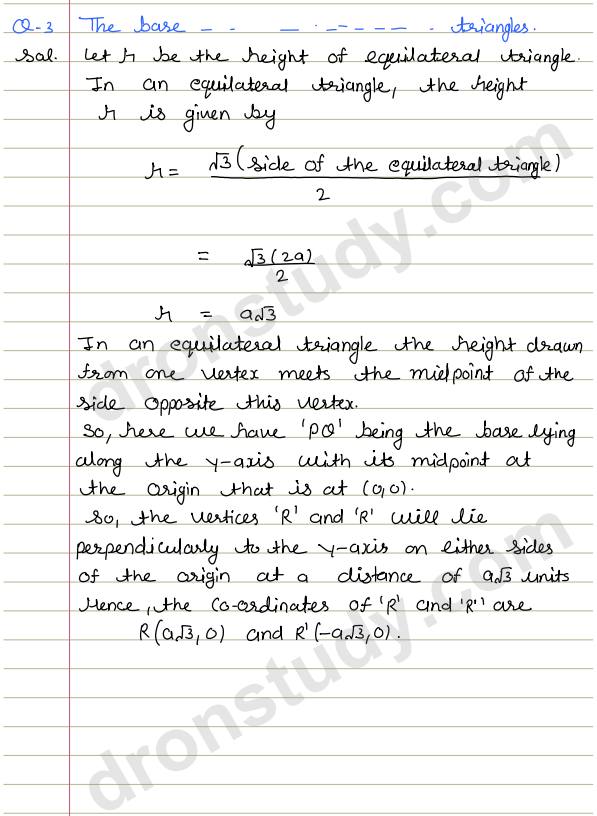 Q-3 The base - - - . - - - - - . triangles.
Sol. Let h be the height of equilateral triangle.
In an equilateral triangle, the height
h is given by
h = √3 (side of the equilateral triangle)
2
= √3 (2a)
2
h = a√3
In an equilateral triangle the height drawn
from one vertex meets the midpoint of the
side opposite this vertex.
So, here we have 'PQ' being the base lying
along the y-axis with its midpoint at
the origin that is at (0,0).
So, the vertices 'R' and 'R' will lie
perpendicularly to the y-axis on either sides
of the origin at a distance of a√3 units
Hence, the Co-ordinates of 'R' and 'R'' are
R(a√3, 0) and R'(-a√3, 0).
dronstudy.com
dronstudy.com